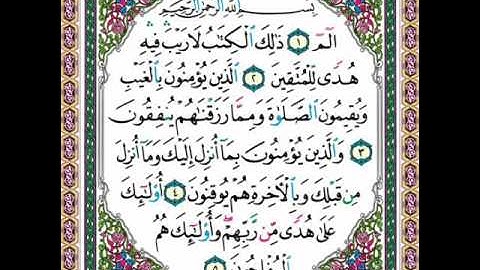 بِسْمِ اللَّهِ الرَّحْمَٰنِ الرَّحِيمِ
الم ١ ذَٰلِكَ الْكِتَابُ لَا رَيْبَ فِيهِ
هُدًى لِلْمُتَّقِينَ ٢ الَّذِينَ يُؤْمِنُونَ بِالْغَيْبِ
وَيُقِيمُونَ الصَّلَوٰةَ وَمِمَّا رَزَقْنَاهُمْ يُنْفِقُونَ
٣ وَالَّذِينَ يُؤْمِنُونَ بِمَا أُنْزِلَ إِلَيْكَ وَمَا أُنْزِلَ
مِنْ قَبْلِكَ وَبِالْآخِرَةِ هُمْ يُوقِنُونَ ٤ أُولَٰئِكَ
عَلَىٰ هُدًى مِنْ رَبِّهِمْ وَأُولَٰئِكَ هُمُ
الْمُفْلِحُونَ ٥